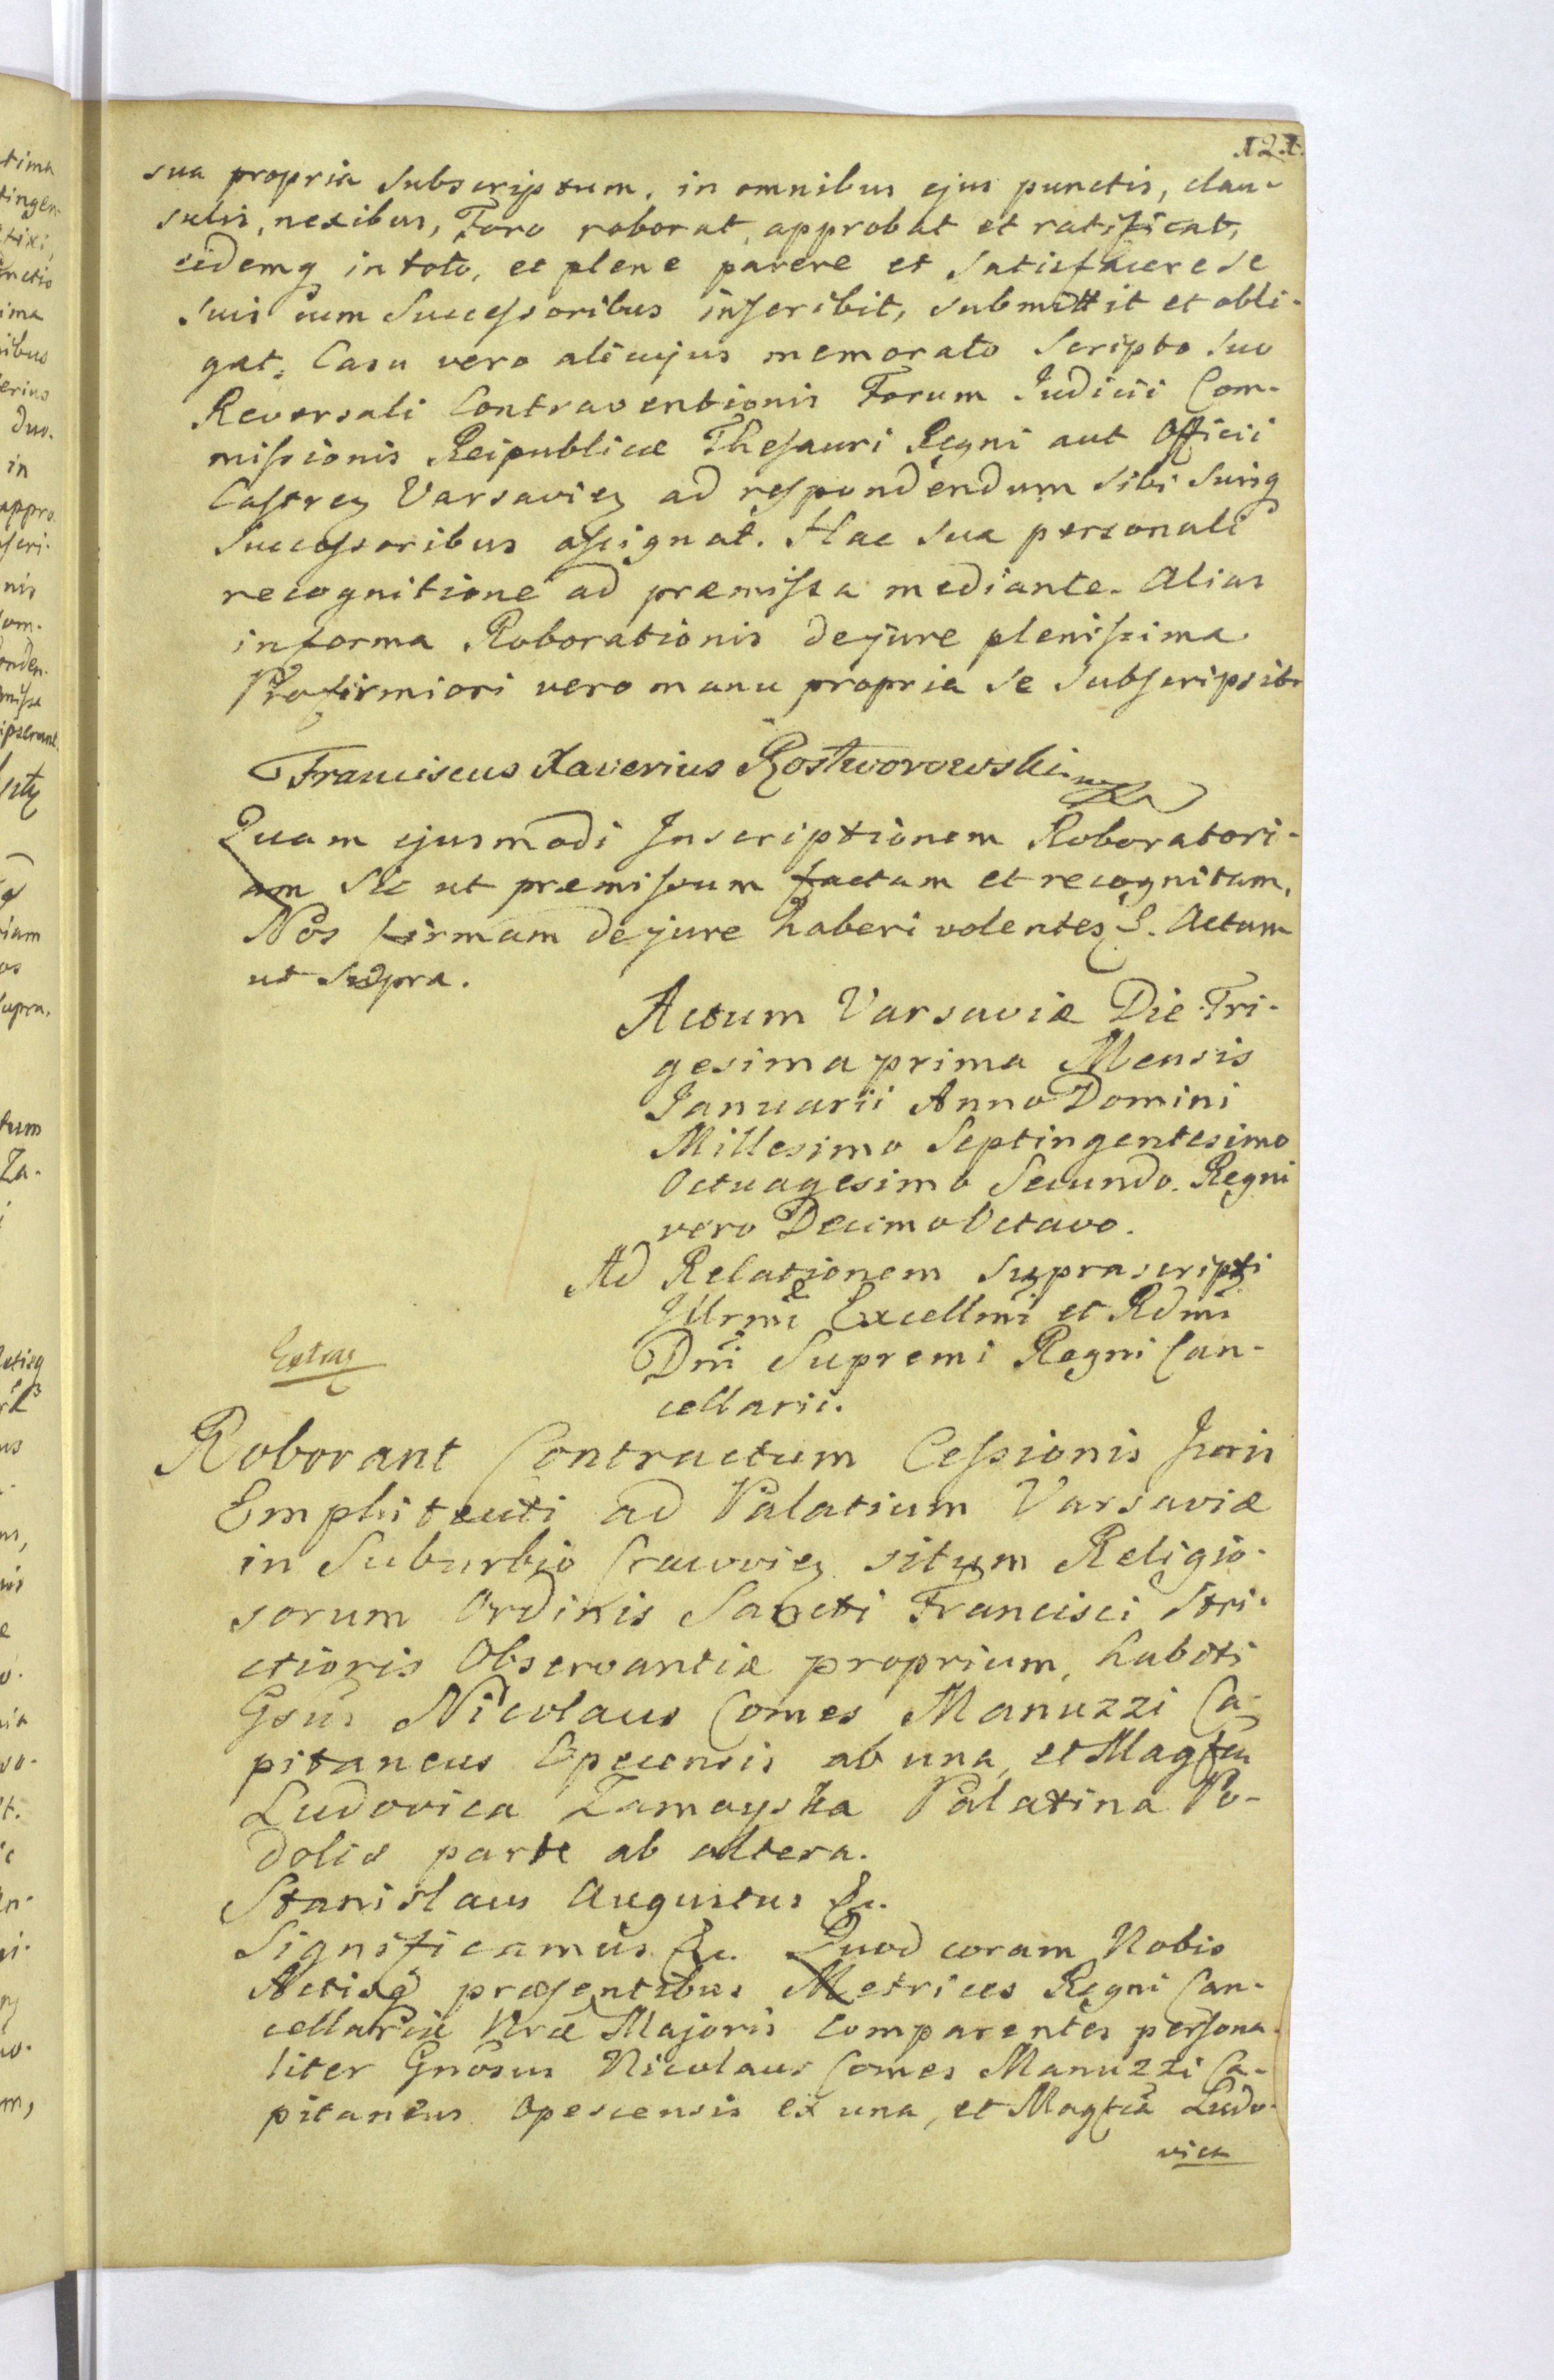 121.
sua propria subscriptum, in omnibus ejus punctis, clau-
sulis, nexibus, Foro roborat, approbat et ratificat,
eidemq in toto, et plene parere et satisfacere se
suis cum Successoribus inscribit, submittit et obli-
gat. Casu vero alicujus memorato Scripto suo
Reversali Contraventionis Forum Judicii Com-
missionis Reipublicæ Thesauri Regni aut Officii
Castren Varsavien ad respondendum sibi suisq
Successoribus assignat. Hac sua personali
recognitione ad præmissa mediante. Alias
in forma Roborationis de jure plenissima.
Pro firmiori vero manu propria se subscripsit.
Franciscus Xaverius Rostworowski mpp
Quam ejusmodi Inscriptionem Roboratori-
am sic ut præmissum factam et recognitam,
Nos firmam de jure haberi volentes &. Actum
ut supra.
Actum Varsaviæ Die Tri-
gesima prima Mensis
Januarii Anno Domini
Millesimo Septingentesimo
Octuagesimo Secundo. Regni
vero Decimo Octavo.
Ad Relationem suprascripti
Illrmi Excellmi et Rdmi
Dni Supremi Regni Can-
cellarii.
Extrad
Roborant Contractum Cessionis Juris
Emphiteuti ad Palatium Varsaviæ
in Suburbio Cracovien situm Religio-
sorum Ordinis Sancti Francisci Stri-
ctioris Observantiæ proprium, habiti
Gsus Nicolaus Comes Manuzzi Ca-
pitaneus Opecensis ab una, et Magfca
Ludovica Zamoyska Palatina Po-
dolis parte ab altera.
Stanislaus Augustus &c.
Significamus &c. Quod coram Nobis
Actisq præsentibus Metrices Regni Can-
cellariæ Nræ Majoris comparentes persona-
liter Gnosus Nicolaus Comes Manuzzi Ca-
pitaneus Opescensis ex una, et Magfca Ludo-
vica